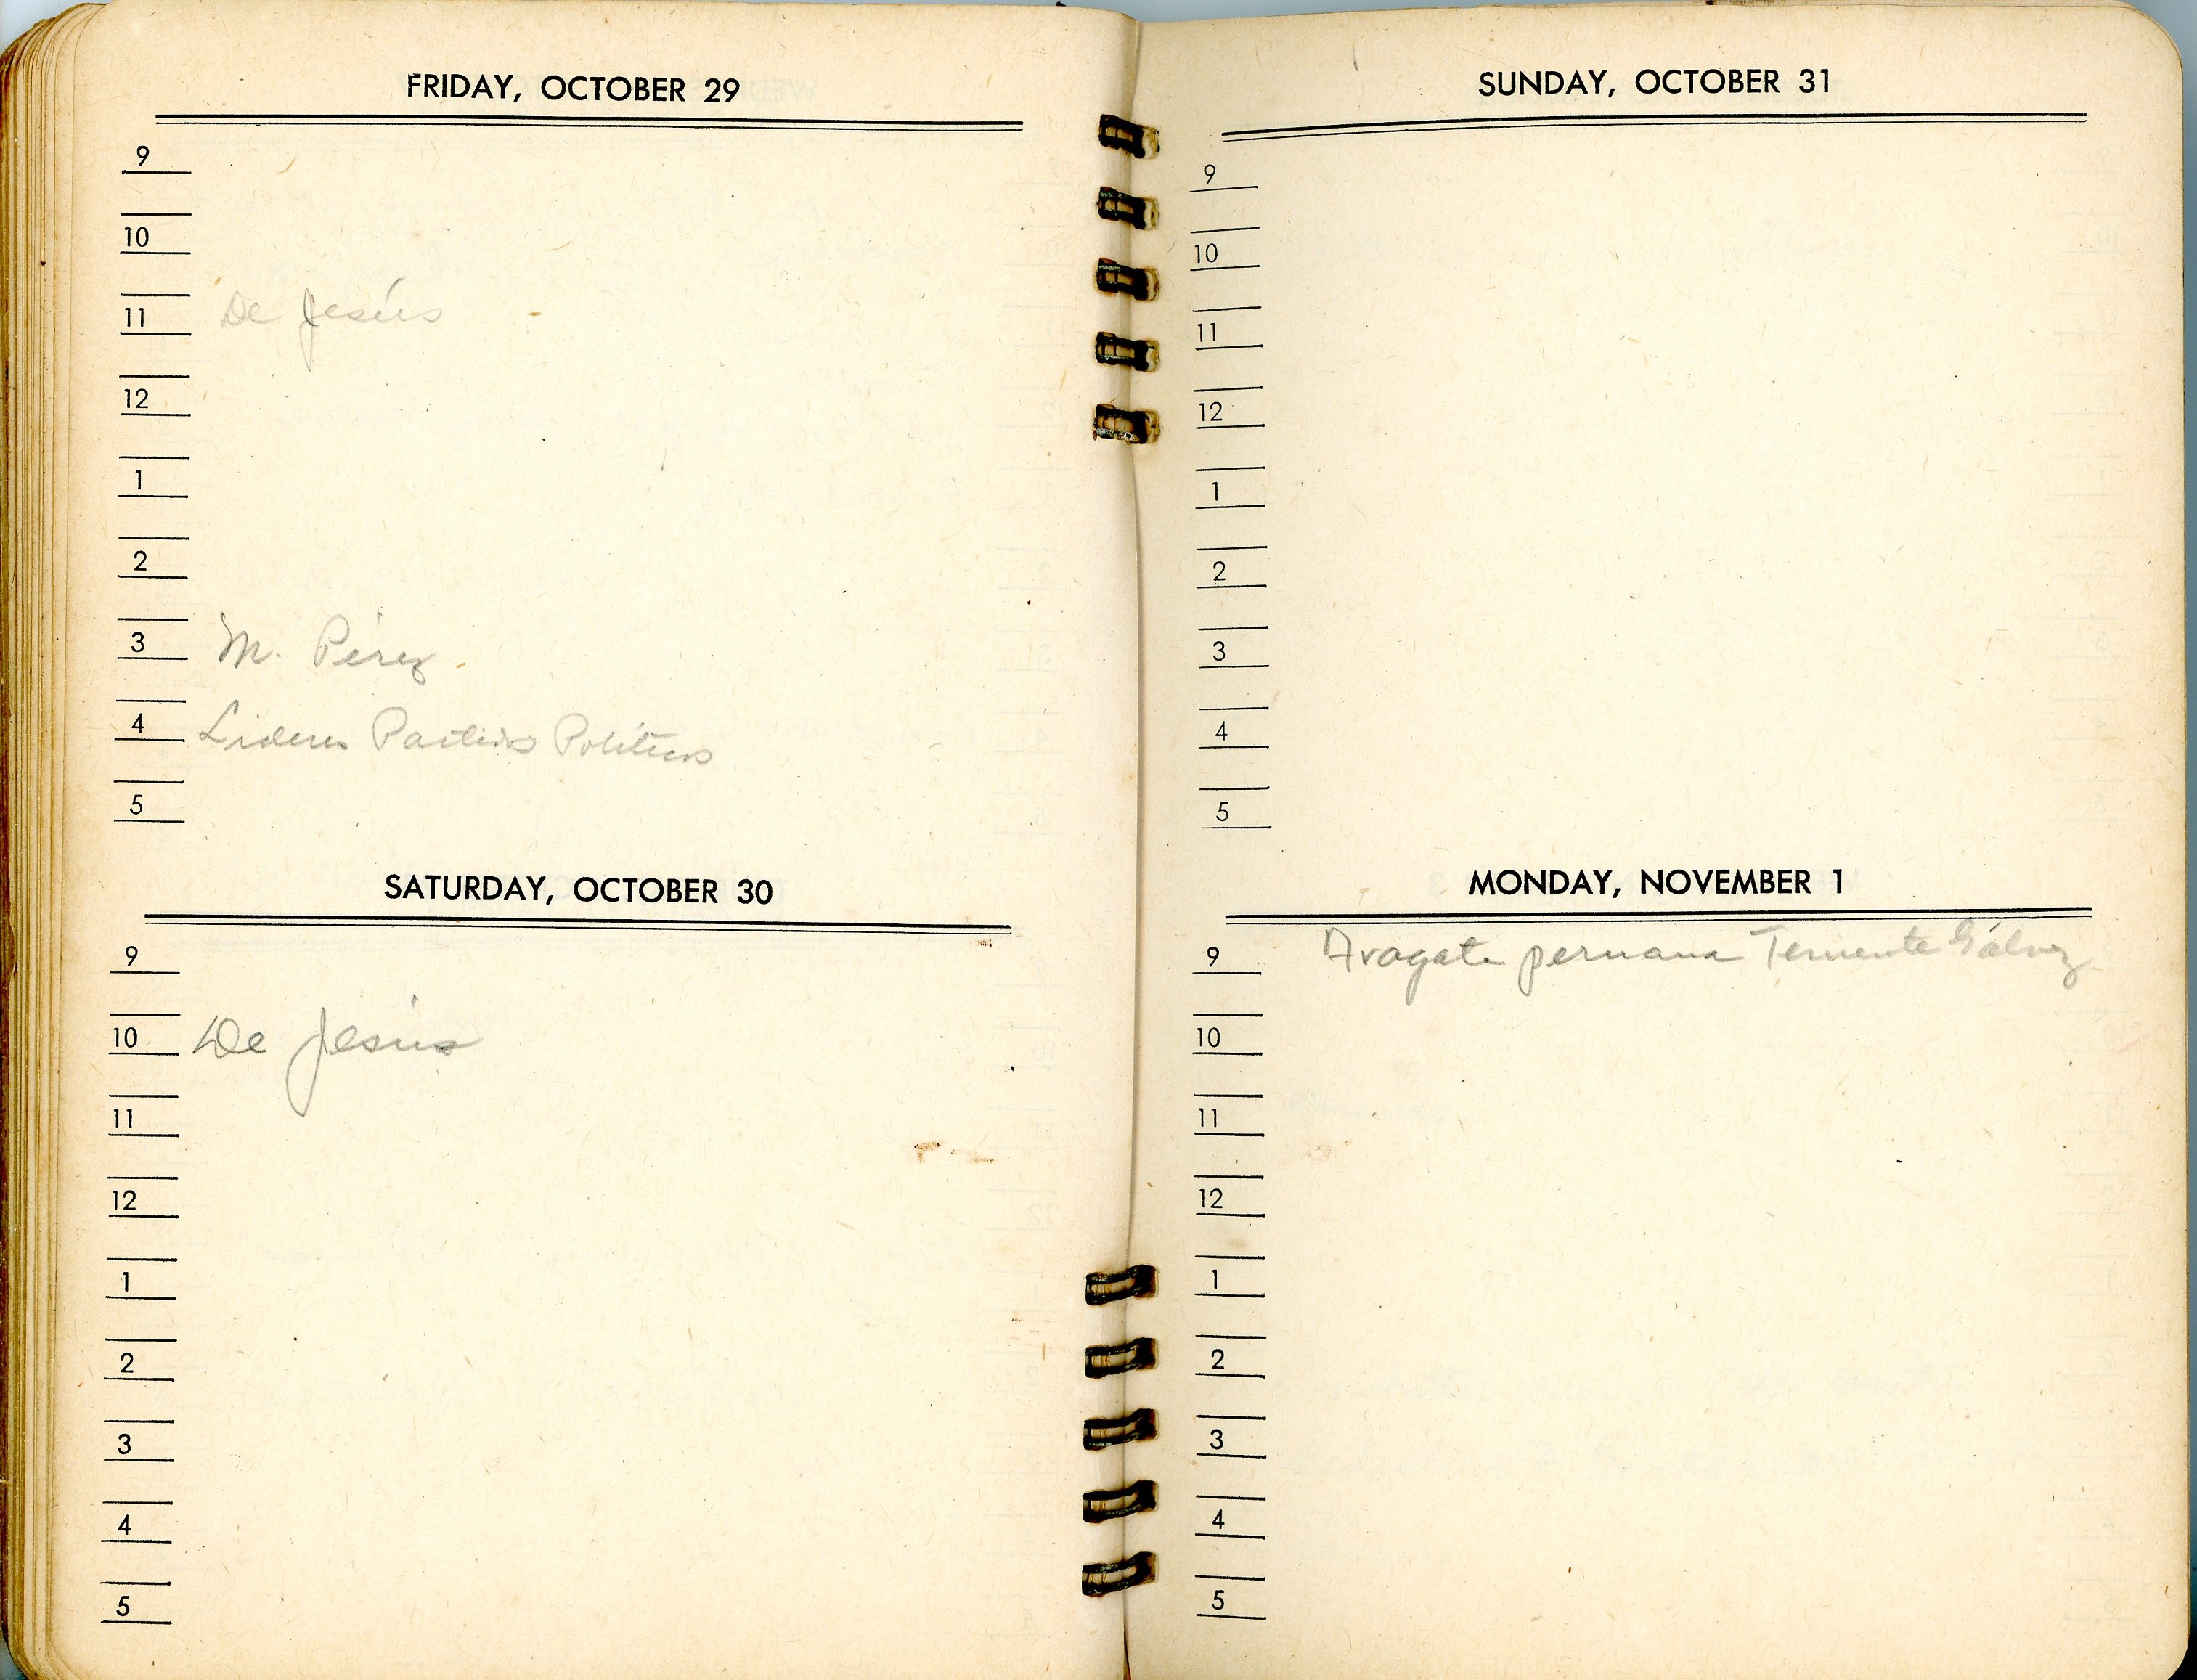 FRIDAY, OCTOBER 29
9
10
11 De Jesús
12
1
2
3 M. Pérez
4 Lideres Partidos Políticos
5
SATURDAY, OCTOBER 30
9
10 De Jesús
11
12
1
2
3
4
5
SUNDAY, OCTOBER 31
9
10
11
12
1
2
3
4
5
MONDAY, NOVEMBER 1
9 Fragata peruana Teniente Gálvez
10
11
12
1
2
3
4
5